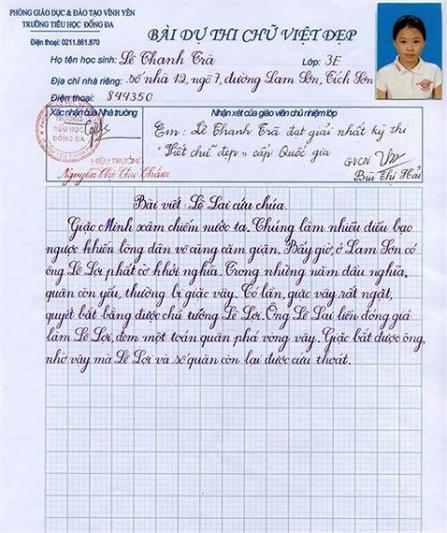 PHÒNG GIÁO DỤC & ĐÀO TẠO VĨNH YÊN
TRƯỜNG TIỂU HỌC ĐỐNG ĐA
Điện thoại: 0211.861.870
BÀI DỰ THI CHỮ VIỆT ĐẸP
Họ tên học sinh: Lê Thanh Trà Lớp: 3E
Địa chỉ nhà riêng: Số nhà 12, ngõ 7, đường Lam Sơn, Tích Sơn
Điện thoại: 844350
Xác nhận của Nhà trường
Nhận xét của giáo viên chủ nhiệm lớp
TRƯỜNG
TIỂU HỌC
ĐỐNG ĐA
HIỆU TRƯỞNG
Nguyễn Thị Thu Thắm
Em: Lê Thanh Trà đạt giải nhất kỳ thi
"Viết chữ đẹp" cấp Quốc gia
GVCN
Bùi Thị Hải
Bài viết: Lê Lai cứu chúa.
Giặc Minh xâm chiếm nước ta. Chúng làm nhiều điều bạo
ngược khiến lòng dân vô cùng căm giận. Bấy giờ, ở Lam Sơn có
ông Lê Lợi phất cờ khởi nghĩa. Trong những năm đầu nghĩa,
quân còn yếu, thường bị giặc vây. Có lần, giặc vây rất ngặt,
quyết bắt bằng được chủ tướng Lê Lợi. Ông Lê Lai liền đóng giả
làm Lê Lợi, đem một toán quân phá vòng vây. Giặc bắt được ông,
nhờ vậy mà Lê Lợi và số quân còn lại được cứu thoát.